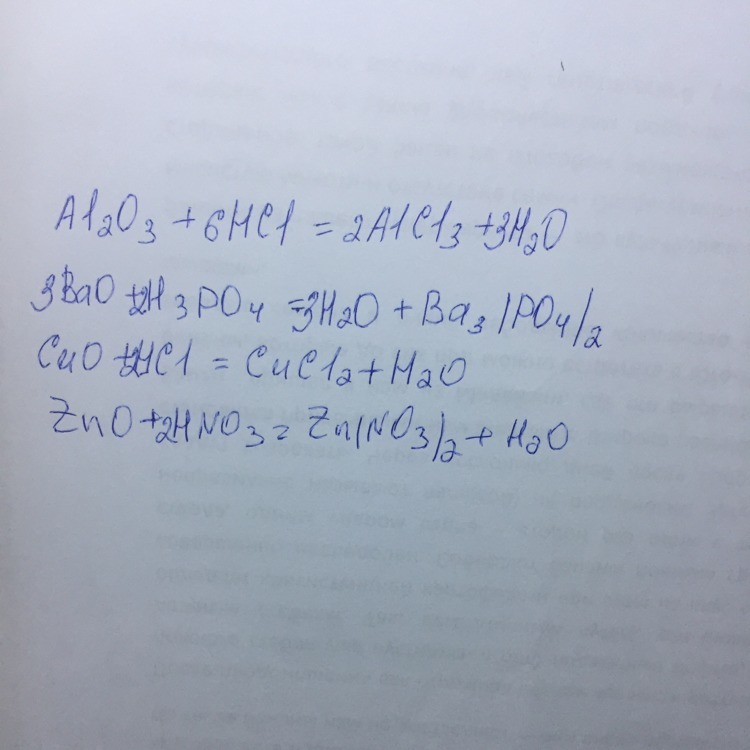 Al₂O₃ + 6HCl = 2AlCl₃ + 3H₂O
3BaO + 2H₃PO₄ = 3H₂O + Ba₃(PO₄)₂
CuO + 2HCl = CuCl₂ + H₂O
ZnO + 2HNO₃ = Zn(NO₃)₂ + H₂O